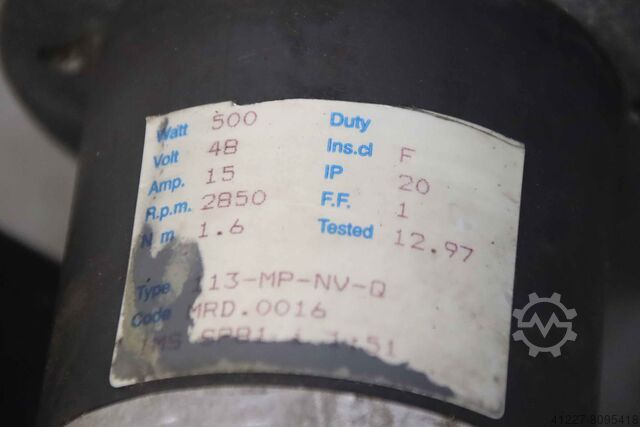 Watt 500 Duty
Volt 48 Ins.cl F
Amp. 15 IP 20
R.p.m. 2850 F.F. 1
N m 1.6 Tested 12.97
Type 113-MP-NV-Q
Code MRD.0016
41227-8095418